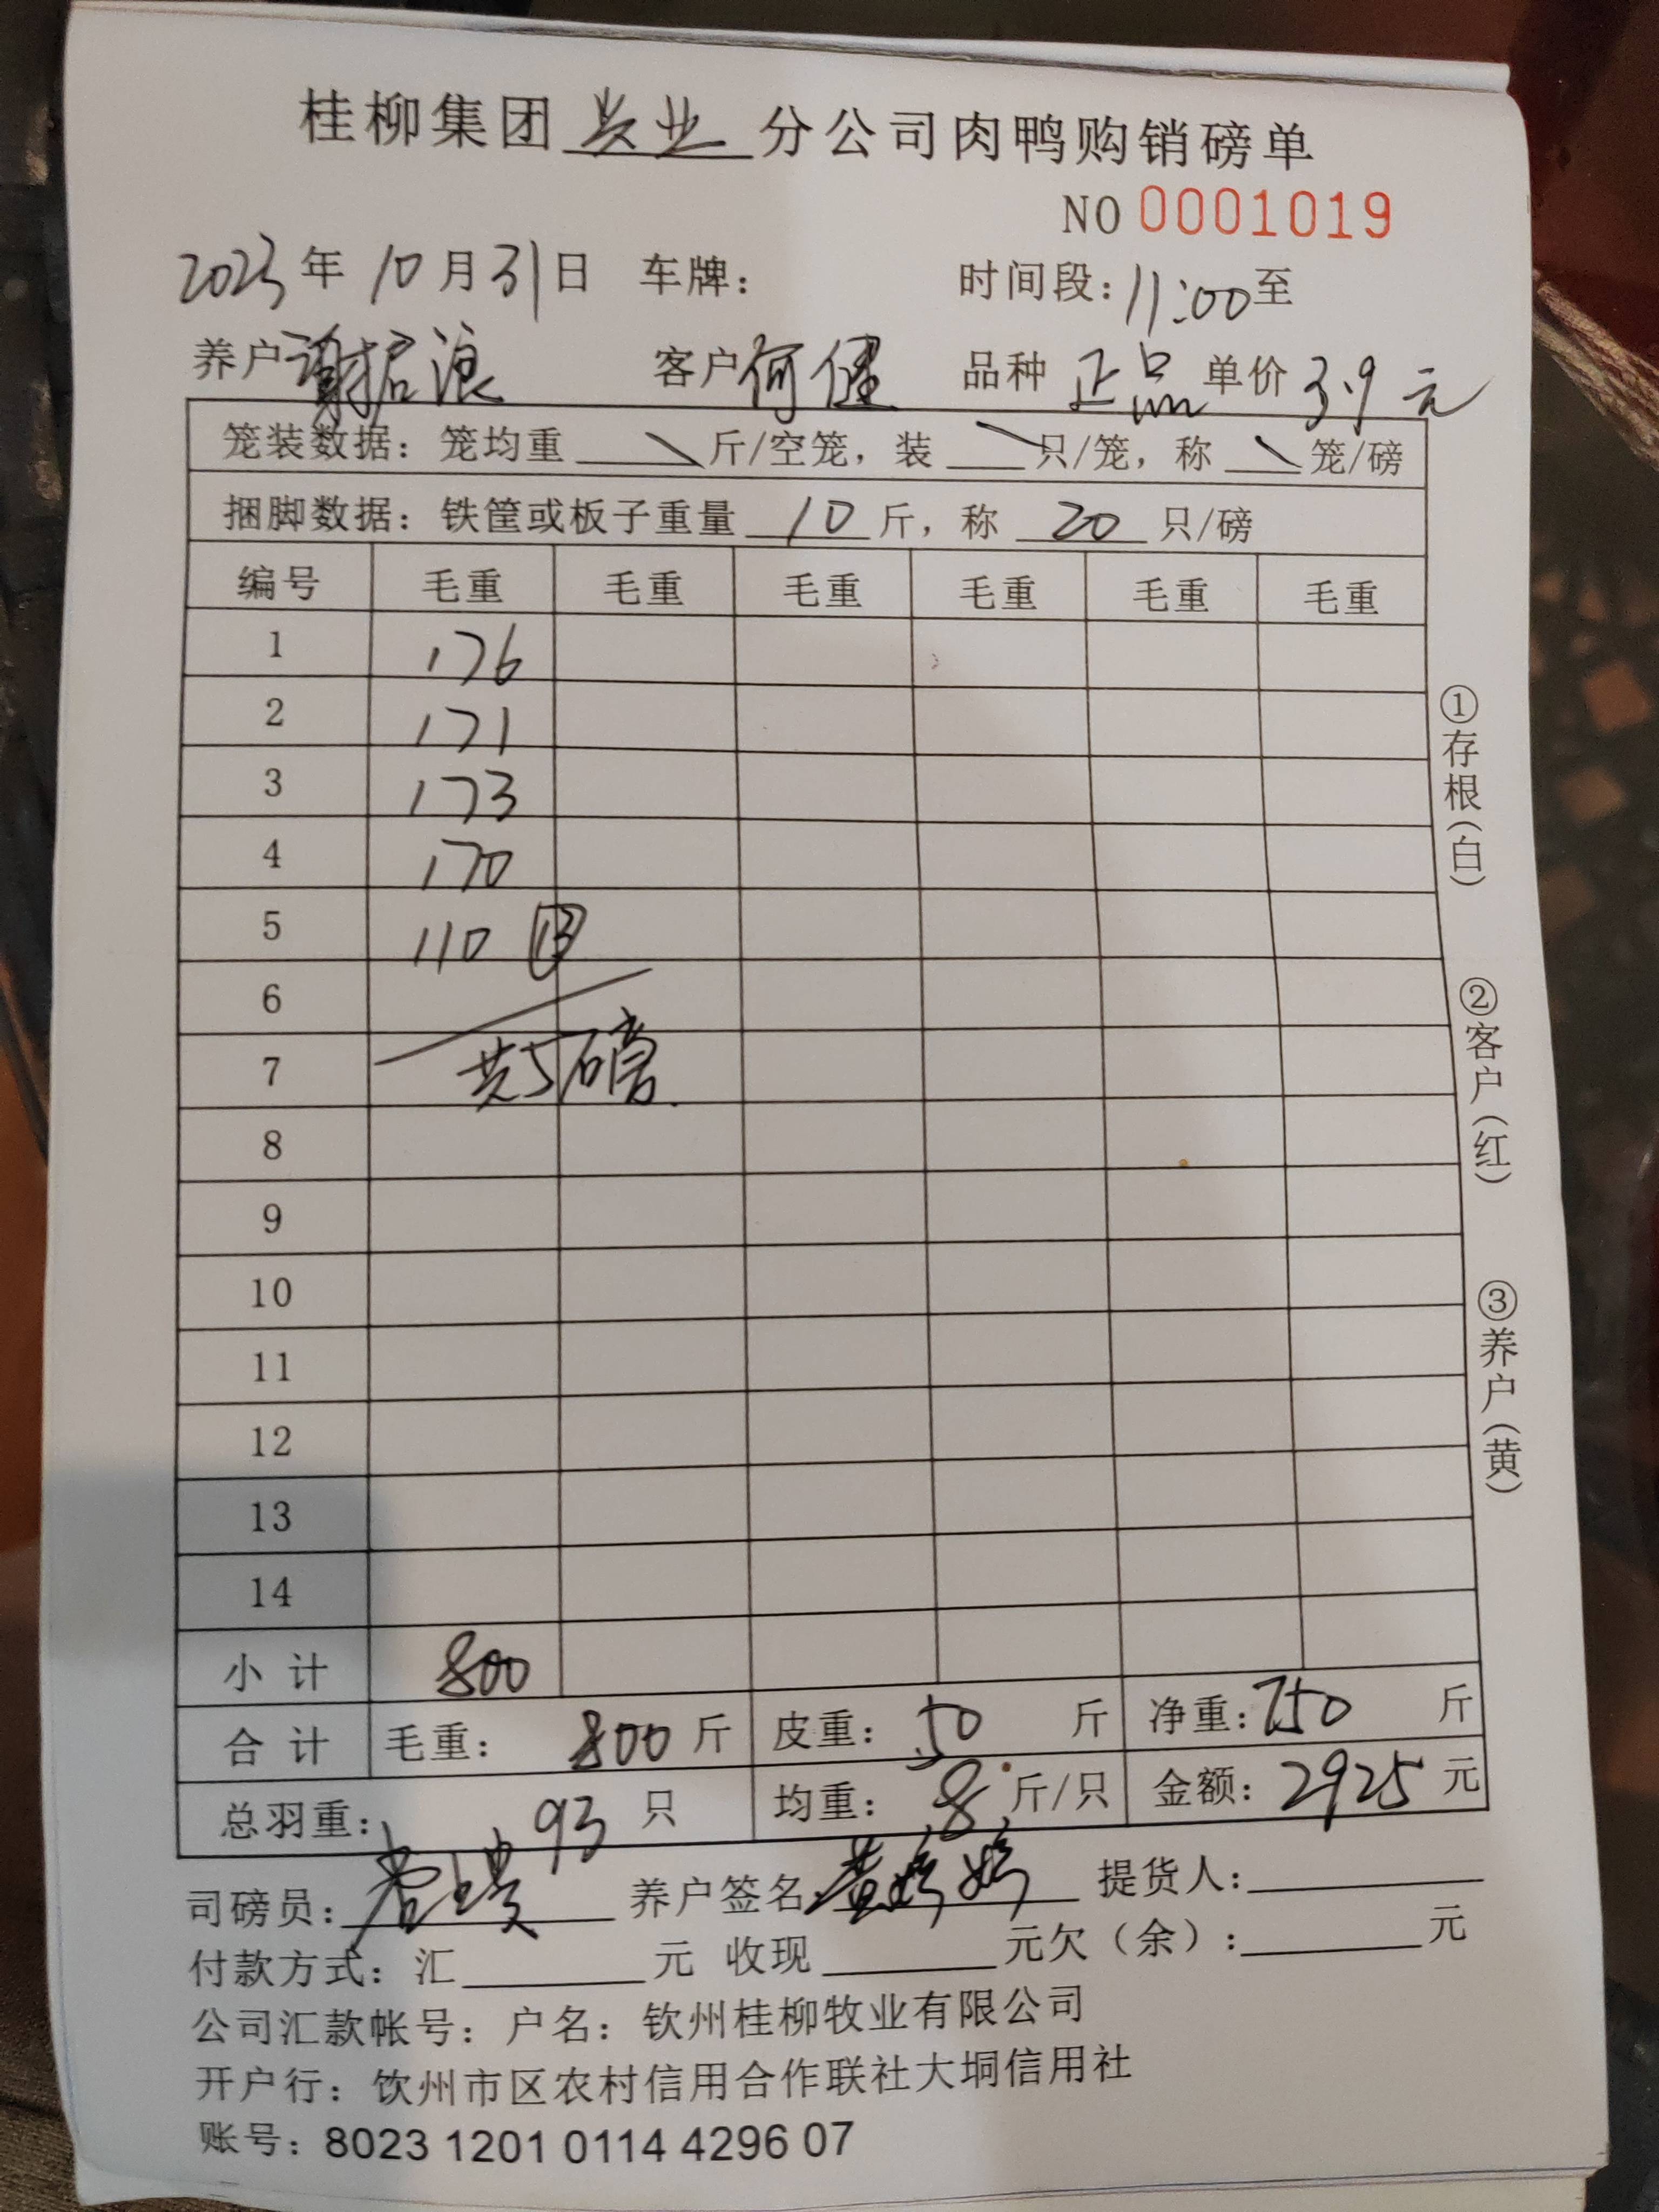 桂柳集团兴业分公司肉鸭购销磅单
NO 0001019
2023年10月31日 车牌： 时间段：11:00至
养户谢居浪 客户何健 品种 正品 单价 3.9元
笼装数据：笼均重 斤/空笼，装 只/笼，称 笼/磅
捆脚数据：铁筐或板子重量 10 斤，称 20 只/磅
编号 毛重 毛重 毛重 毛重 毛重 毛重
1 176
2 171
3 173
4 170
5 110 13
6
7 共5磅
8
9
10
11
12
13
14
小计 800
合计 毛重：800斤 皮重：50斤 净重：750斤
总羽重：93只 均重：8斤/只 金额：2925元
司磅员： 养户签名：黄婷婷 提货人：
付款方式：汇 元 收现 元欠（余）： 元
公司汇款帐号：户名：钦州桂柳牧业有限公司
开户行：饮州市区农村信用合作联社大垌信用社
账号：8023 1201 0114 4296 07
①存根（白）
②客户（红）
③养户（黄）